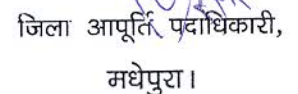 जिला आपूर्ति पदाधिकारी,
मधेपुरा।